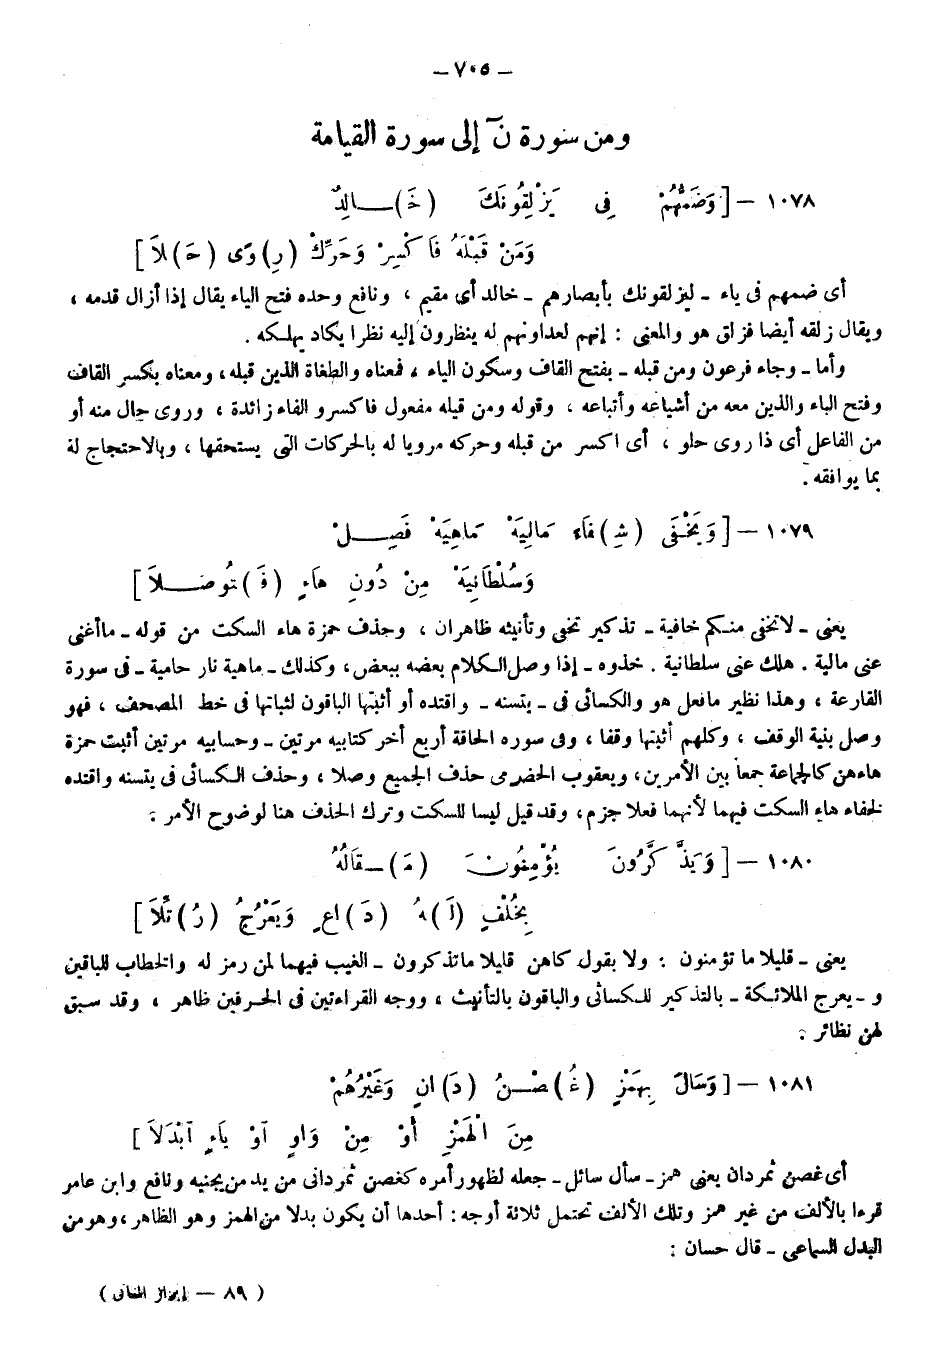 – ٧٠٥ –
ومن سورة نٓ إلى سورة القيامة
١٠٧٨ – [وَضَمُّهُمْ فِى يَزْلِقُونَكَ (خَ)ـالِدٌ
وَمَنْ قَبْلَهُ فَاكْسِرْ وَحَرِّكْ (رِ)وًى (حَ)لاَ]
أى ضمهم فى ياء ـ ليزلقونك بأبصارهم ـ خالد أى مقيم ، ونافع وحده فتح الياء يقال إذا أزال قدمه ،
ويقال زلقه أيضا فزلق هو والمعنى : إنهم لعداوتهم له ينظرون إليه نظرا يكاد يهلكه .
وأما ـ وجاء فرعون ومن قبله ـ بفتح القاف وسكون الباء ، فمعناه والطغاة الذين قبله ، ومعناه بكسر القاف
وفتح الباء والذين معه من أشياعه وأتباعه ، وقوله ومن قبله مفعول فاكسر و الفاء زائدة ، وروى حال منه أو
من الفاعل أى ذا روى حلو ، أى اكسر من قبله وحركه مرويا له بالحركات التى يستحقها ، وبالاحتجاج له
بما يوافقه .
١٠٧٩ – [وَيَخْفَى (شِ)فَاء مَالِيَهْ مَاهِيَهْ فَصِـلْ
وَسُلْطَانِيَهْ مِنْ دُونِ هَاءٍ (فَ)تُوصَـلاَ]
يعنى ـ لاتخفى منكم خافية ـ تذكير تخفى وتأنيثه ظاهران ، وحذف حمزة هاء السكت من قوله ـ ماأغنى
عنى مالية . هلك عنى سلطانية . خذوه ـ إذا وصل الكلام بعضه ببعض ، وكذلك ـ ماهية نار حامية ـ فى سورة
القارعة ، وهذا نظير مافعل هو والكسائى فى ـ يتسنه ـ واقتده أو أثبتها الباقون لثباتها فى خط المصحف ، فهو
وصل بنية الوقف ، وكلهم أثبتها وقفا ، وفى سوره الحاقة أربع أخر كتابيه مرتين ـ وحسابيه مرتين أثبت حمزة
هاءهن كالجماعة جمعا بين الأمرين ، ويعقوب الحضرمى حذف الجميع وصلا ، وحذف الكسائى فى يتسنه واقتده
لخفاء هاء السكت فيهما لأنهما فعلا جزم ، وقد قيل ليسا للسكت وترك الحذف هنا لوضوح الأمر .
١٠٨٠ – [وَيَذَّكَّرُونَ يُؤْمِنُونَ (مَ)ـقَالُهُ
بِخُلْفٍ (لَ)هُ (دَ)اعٍ وَيَعْرُجُ (رُ)تِّلاَ]
يعنى ـ قليلا ما تؤمنون : ولا بقول كاهن قليلا ماتذكرون ـ الغيب فيهما لمن رمز له والخطاب للباقين
و ـ يعرج الملائكة ـ بالتذكير للكسائى والباقون بالتأنيث ، ووجه القراءتين فى الحرفين ظاهر ، وقد سبق
لهن نظائر :
١٠٨١ – [وَسَالَ بِهَمْزٍ (غُ)صْـنُ (دَ)انٍ وَغَيْرُهُمْ
مِنَ الْهَمْزِ أَوْ مِنْ وَاوٍ آوْ يَاءٍ آبْدَلاَ]
أى غصن ثمر دان يعنى همز ـ سأل سائل ـ جعله لظهور أمره كغصن ثمر دانى من يد من يجنيه ونافع وابن عامر
قرءا بالألف من غير همز وتلك الألف تحتمل ثلاثة أوجه : أحدها أن يكون بدلا من الهمز وهو الظاهر ، وهو من
البدل السماعى ـ قال حسان :
( ٨٩ — إبراز المعانى )